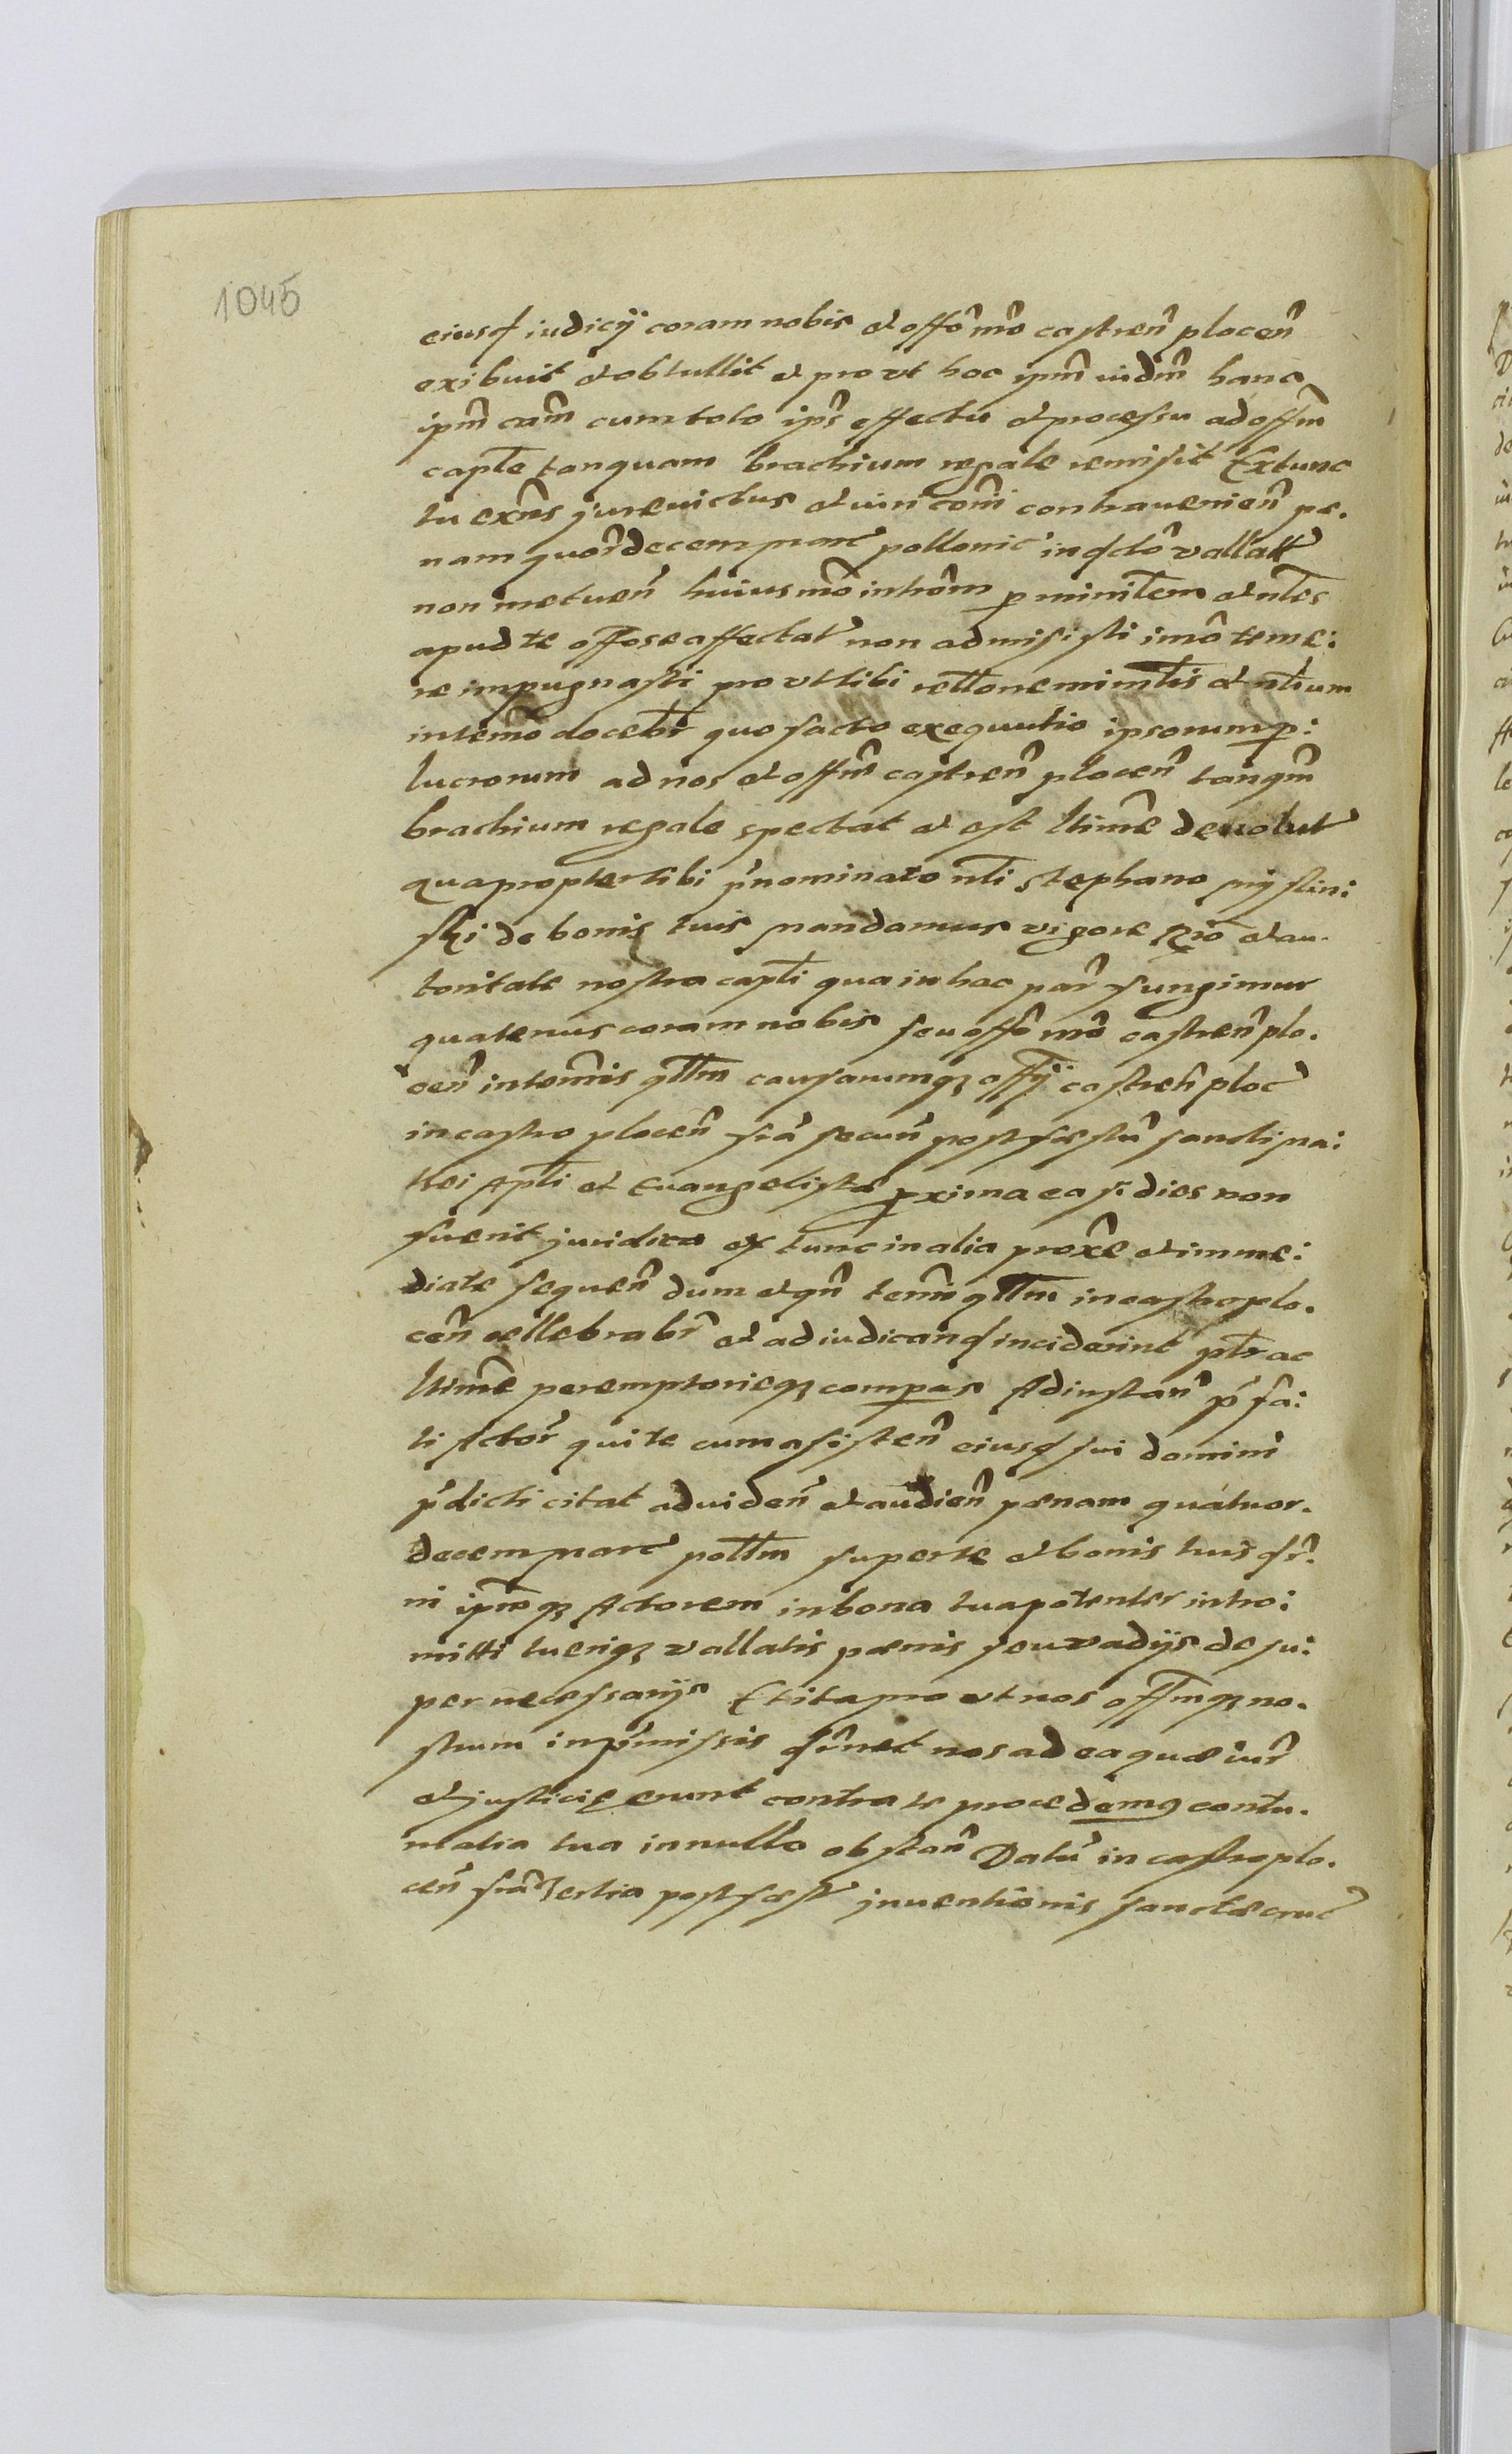 1045
eiusd iudicÿ coram nobis et offō nrō castren̄ plocen̄
exibuit et obtullit et pro vt hoc ipm̄ iudm̄ hanc
ipm̄ cām cum toto ips effectu et processu ad offm̄
capt̄e tanquam brachium regale remisit Extunc
tu exn̄s jure victus et iuri com̄i contravenien̄ pe.
nam quor̄decem marc pollonic in dctō vallatt
non metuen̄ huius mō introm̄ p minit̄em et nt̄es
apud te offose affectat non admisisti imō teme:
re impugnasti pro vt tibi rellone minit̄is et nt̄ium
in term̄o docebr̄ quo facto exequutio ipsorum p:
lucrorum ad nos et offm̄ castren̄ plocen̄ tanqm̄
brachium regale spectat et est ltime devolut
qua propter tibi pnominato nt̄i Stephano
ski de bonis tuis mandamus vigore et au.
toritate nostra capt̄i qua in hac par̄ fungimur
quatenus coram nobis seu offō nrō castren̄ plo.
cen̄ in termīs qllm causarumq offÿ castren̄ ploc
in castro plocen̄ fra secun̄ post festū sancti ma:
thei Apt̄i et Euangelistæ pxima ea si dies non
fuerit juridica ex tunc in alia proxe et imme:
diate sequen̄ dum et qn̄ term̄ qllm in castro plo.
cen̄ cellebrabr̄ et ad iudicand inciderint ptr̄ ac
ltime peremptorieq compas Ad instan̄ p fa:
ti Actor̄ qui te cum asisten̄ eiusd sui domini
pdicti citat ad viden̄ et audien̄ pænam quatuor.
decem marc pollm super te et bonis tuis dr̄.
ni ipmq Actorem in bona tua potenter intro:
mitti tueriq vallatis pænis seu vadijs de su:
per necessarijs Et ita pro vt nos offmq no.
strum in pmissis drnet nos ad ea quæ iur̄
et justicię erunt contra te procedemq contu.
matia tua in nullo obstan̄ Datū in castro plo.
cen̄ fra tertia post fæst jnuentionis sanctæ cruc